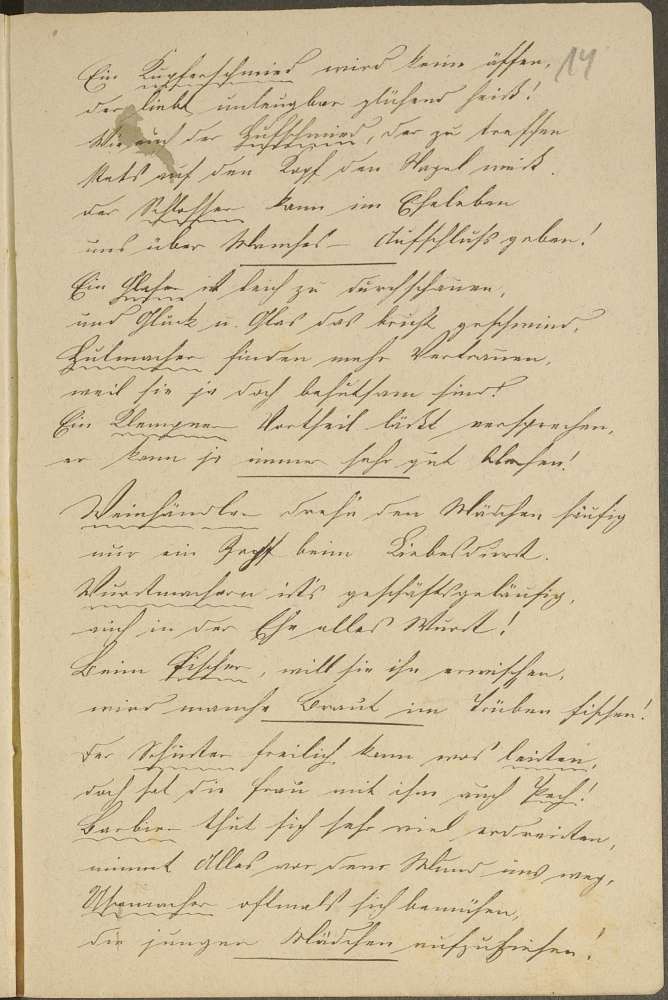 14
Ein Kupferschmied wird keine äffen,
der liebt unleugbar glühend heiß!
Wie auch der Hufschmied, der zu treffen
stets auf den Kopf den Nagel weiß.
Der Schlosser kann im Eheleben
uns über Manches – Aufschluß geben!
Ein Glaser ist leich zu durchschauen,
und Glück u. Glas das bricht geschwind,
Hutmacher finden mehr Vertrauen,
weil sie ja doch behutsam sind!
Ein Klempner Vortheil läßt versprechen,
er kann ja immer sehr gut blechen!
Weinhändler drehn den Mädchen häufig
nur ein Zopf beim Liebesdienst.
Wurstmachern ist's geschäftsgeläufig,
auch in der Ehe alles Wurst!
Beim Fischer, will sie ihn erwischen,
wird manche Braut im Trüben fischen!
Der Schuster freilich kann was leisten,
doch hat die Frau mit ihm auch Pech!
Barbier thut sich sehr viel erdreisten,
nimmt Alles vor dem Mund uns weg,
Uhrmacher oftmals sich bemühen,
die jungen Mädchen aufzuziehen!